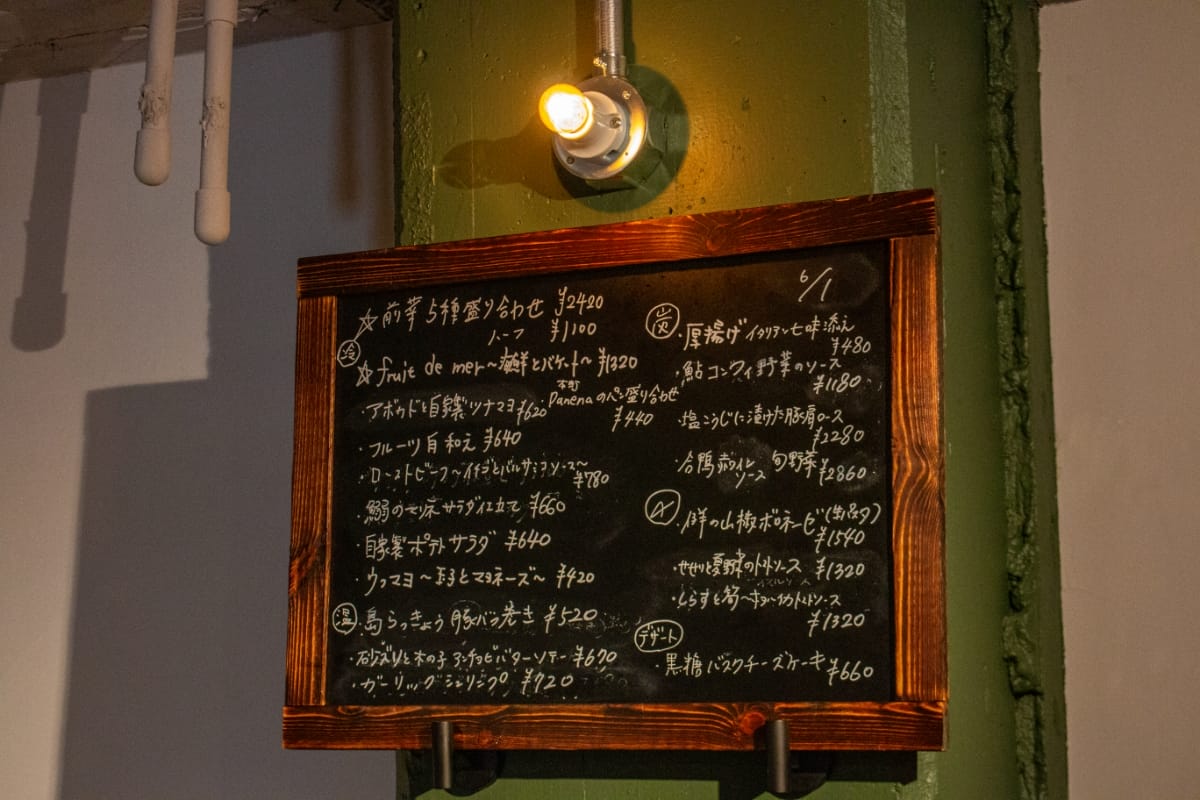 冷
☆前菜5種盛り合わせ ¥2420
ハーフ ¥1100
☆fruit de mer～海鮮とバゲット～ ¥1320
・アボカドと自家製ツナマヨ ¥620
本町 Panenaのパン盛り合わせ
¥440
・フルーツ白和え ¥640
・ローストビーフ～イチゴとバルサミコソース～
¥780
・鰯のサラダ仕立て ¥660
・自家製ポテトサラダ ¥640
・ウフマヨ～玉子とマヨネーズ～ ¥420
温
・島らっきょう豚バラ巻き ¥520
・砂ズリと木の子アンチョビバターソテー ¥670
・ガーリックシュリンプ ¥720
6/1
炭
・厚揚げイタリアン七味添え
¥480
・鮎コンフィ野菜のソース
¥1180
・塩こうじに漬けた豚肩ロース
¥2280
合鴨赤ワインソース 旬野菜 ¥2860
・鮮の山椒ボロネーゼ
¥1540
・せせりと夏野菜のトマトソース ¥1320
・しらすと筍～ホタルイカトマトソース
¥1320
デザート
・黒糖バスクチーズケーキ ¥660